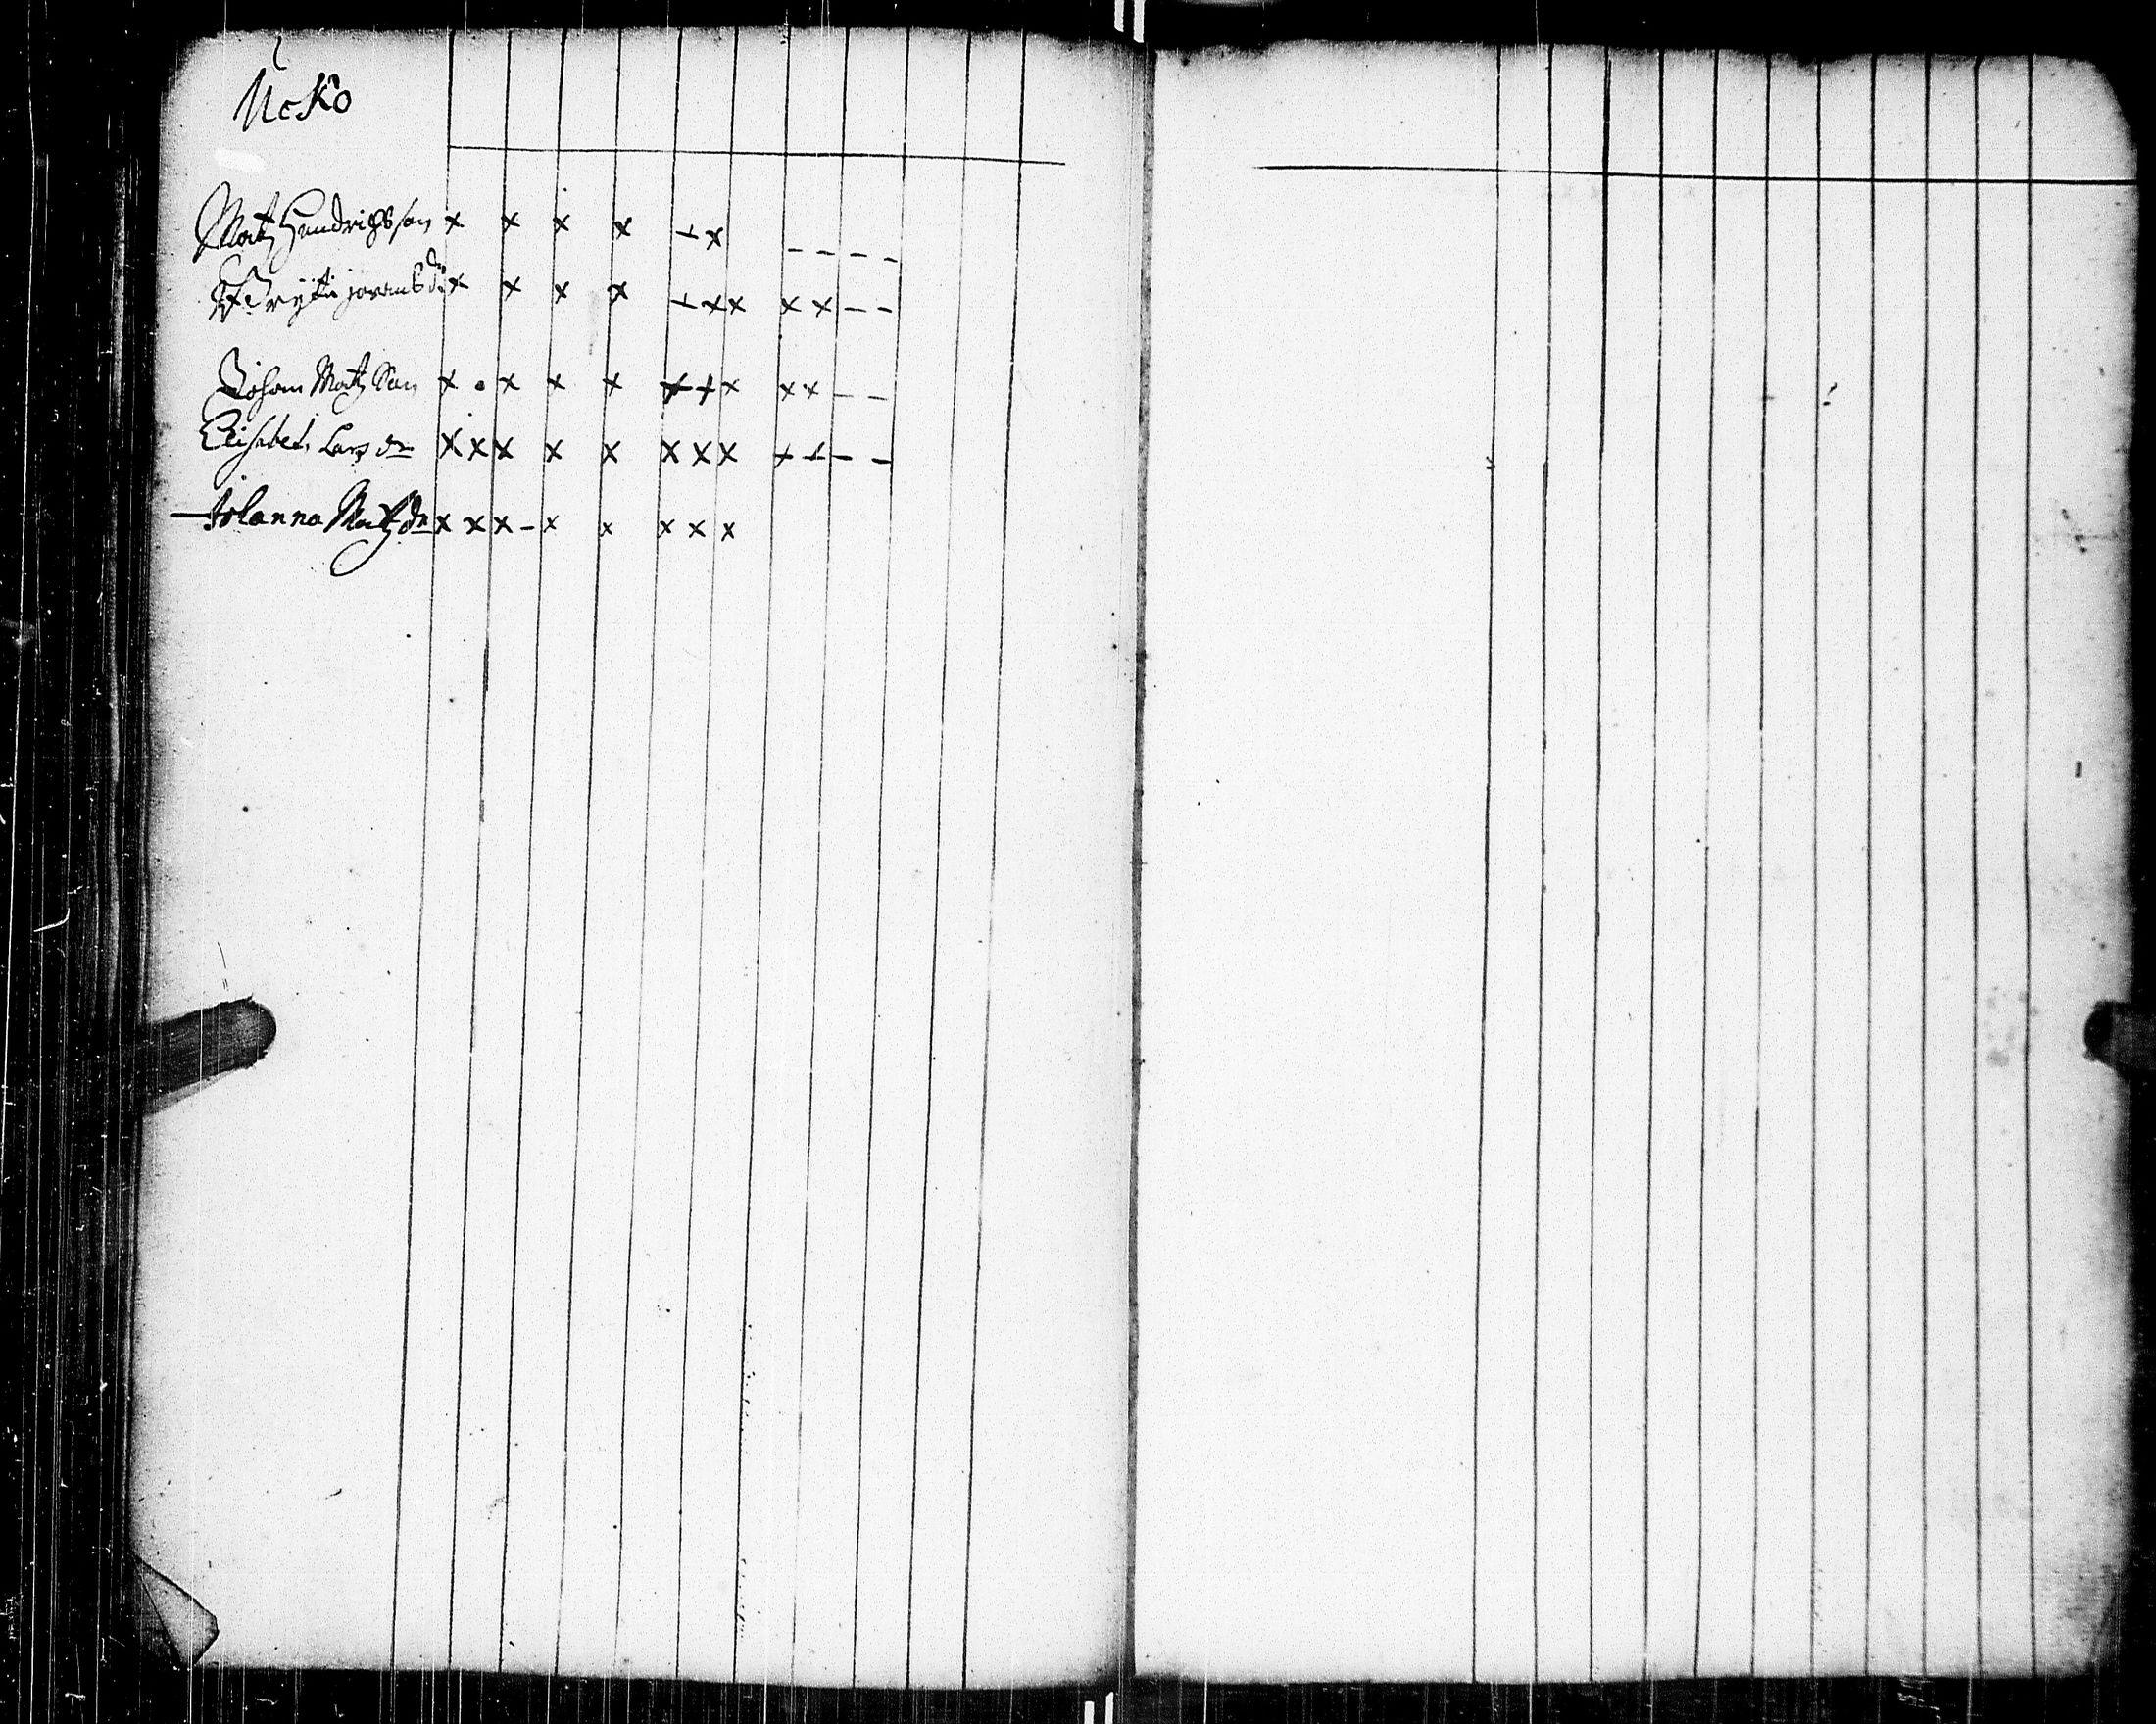 Uskö
Matz Hendrichsson x x x x + x – – – –
Brijta jöransdr x x x x + x x x x – –
Johan Matz Son x • x x x + + x x x – –
Elisabet Lars dr x x x x x x x x + + – –
Johanna Matz dr x x x – x x x x x